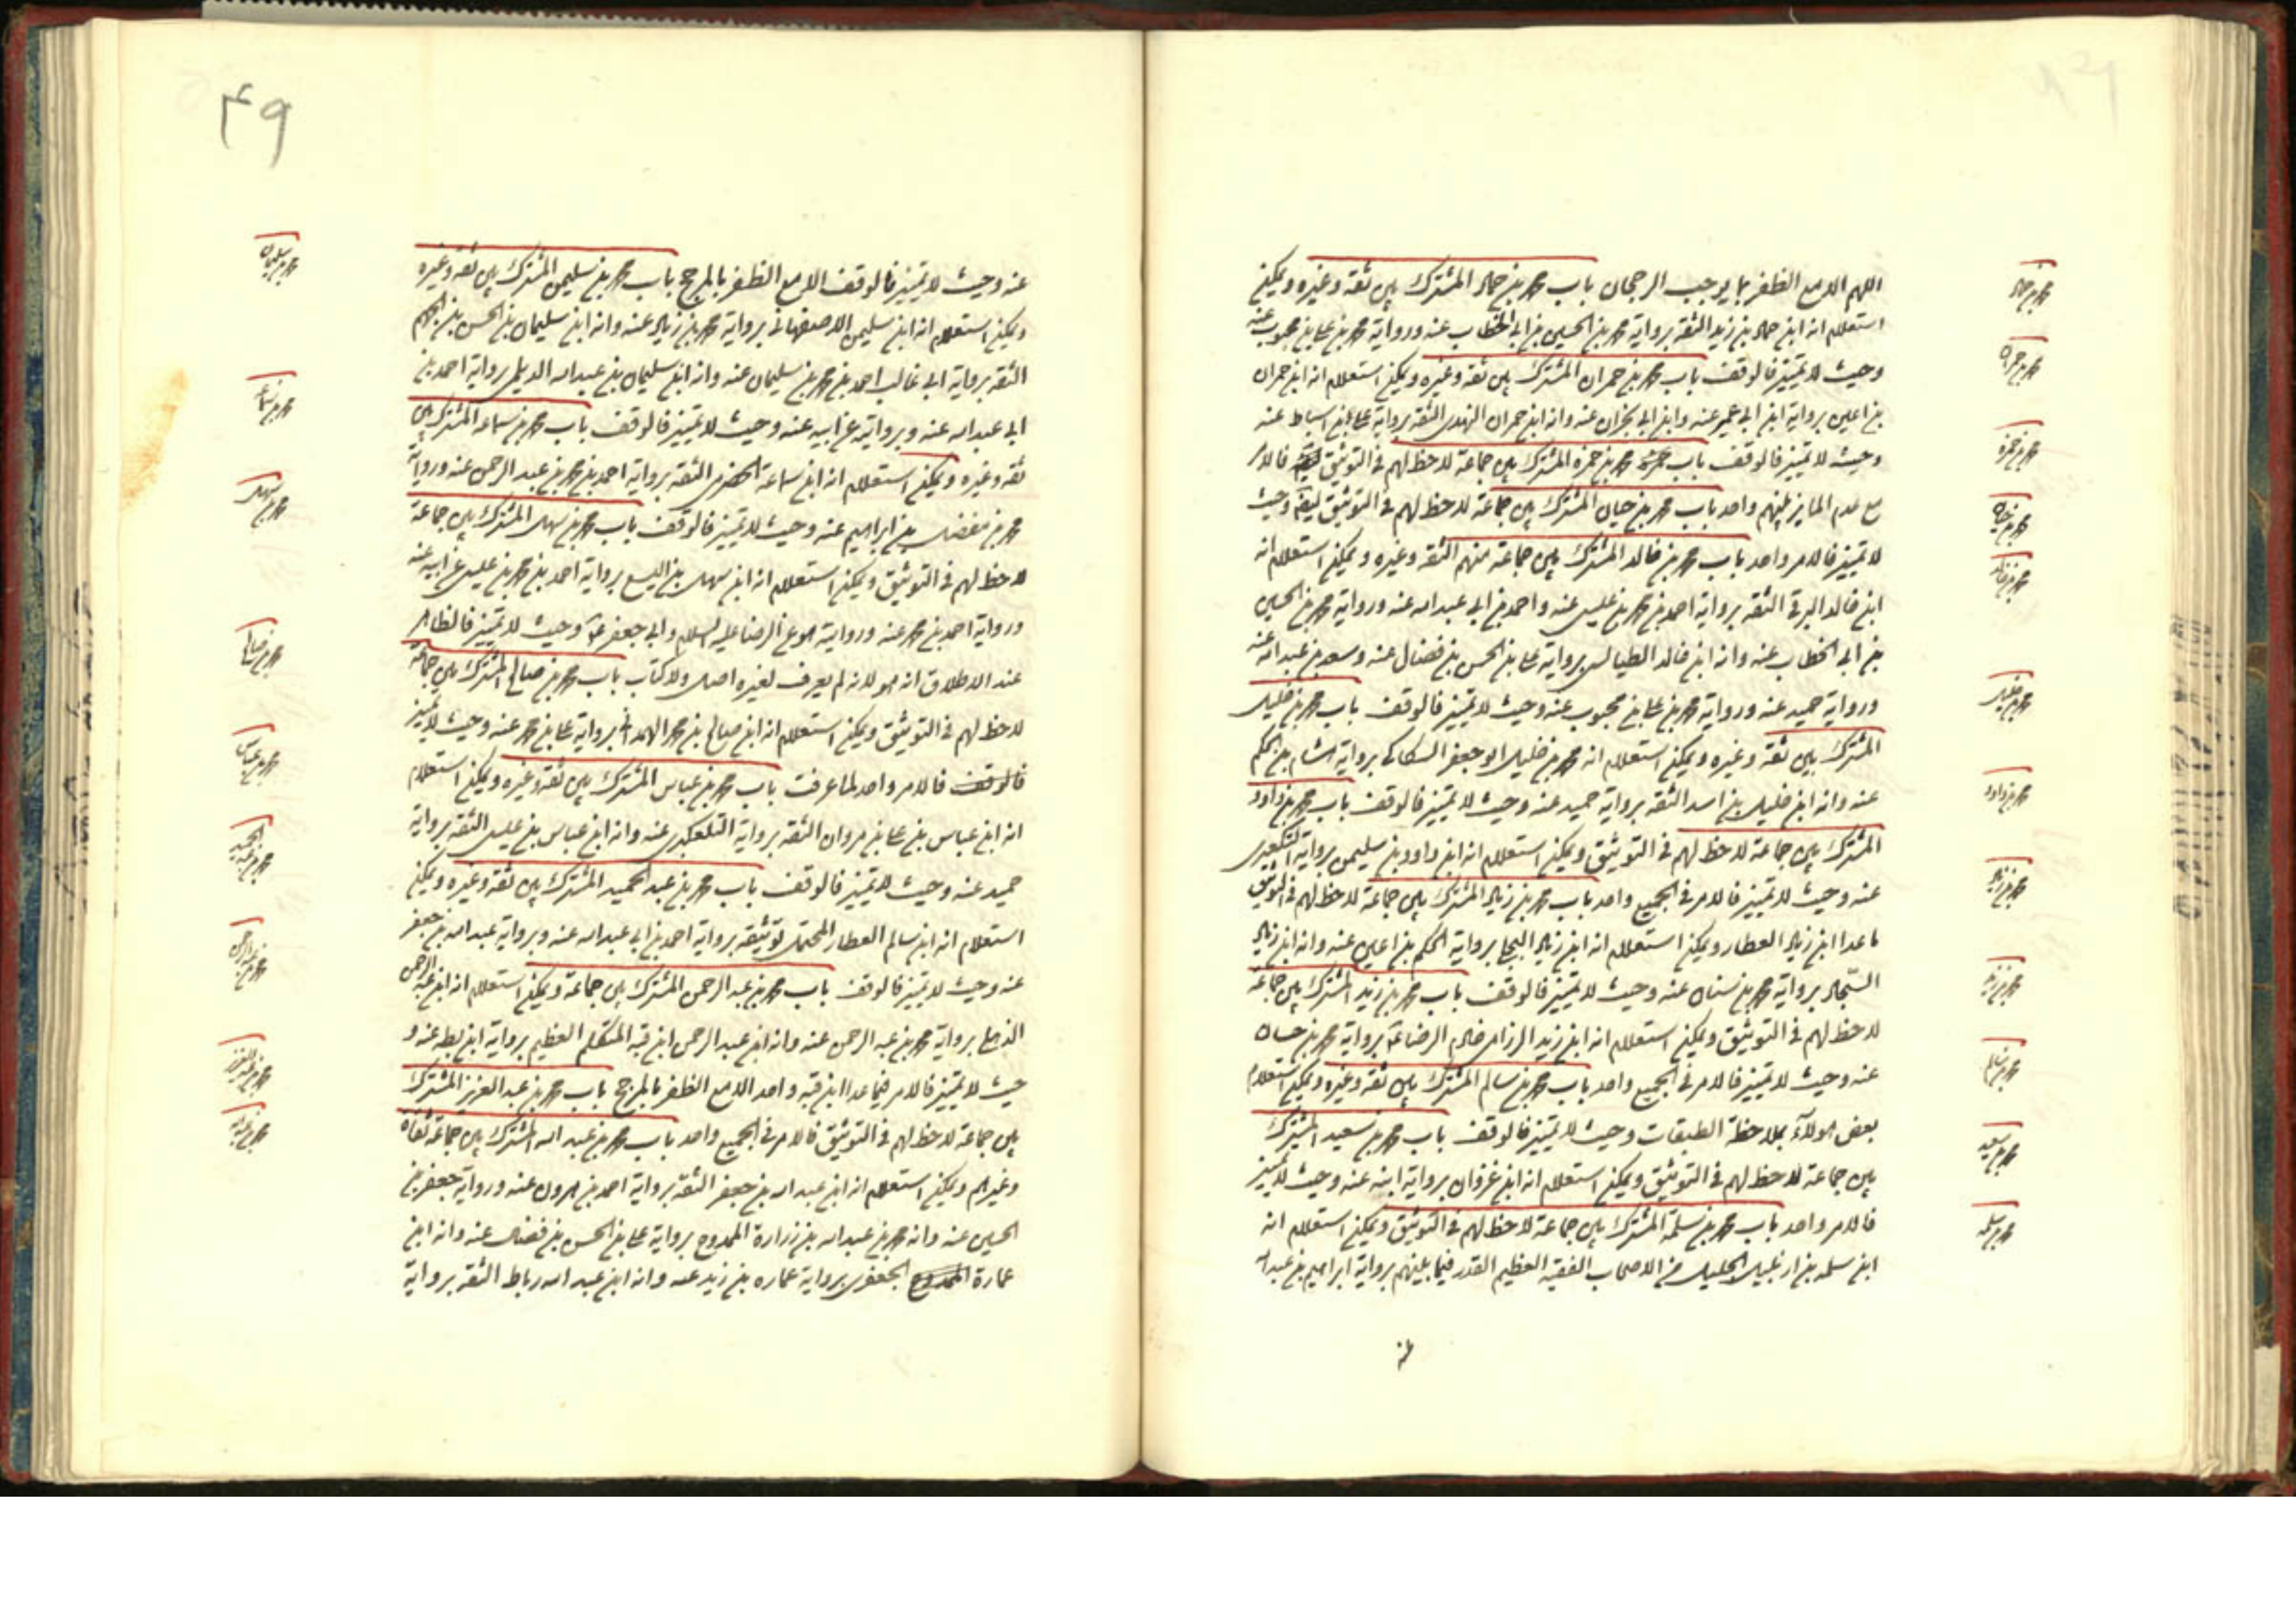 اللهم الا مع الظفر بما يوجب الرجحان باب محمد بن حماد المشترك بين ثقة وغيره ويمكن
استعلام انه ابن حماد بن زيد الثقة برواية محمد بن الحسين بن ابي الخطاب عنه ورواية محمد بن علي بن محبوب عنه
وحيث لا تمييز فالوقف باب محمد بن حمران المشترك بين ثقة وغيره ويمكن استعلام انه ابن حمران
بن اعين برواية ابن ابي عمير عنه وابن ابي نجران عنه وانه ابن حمران النهدي الثقة برواية علي بن اسباط عنه
وحيث لا تمييز فالوقف باب محمد بن حمزه المشترك بين جماعة لا حظ لهم في التوثيق فالامر
مع عدم المايز بينهم واحد باب محمد بن حيان المشترك بين جماعة لا حظ لهم في التوثيق وحيث
لا تمييز فالامر واحد باب محمد بن خالد المشترك بين جماعة منهم الثقة وغيره ويمكن استعلام انه
ابن خالد البرقي الثقة برواية احمد بن محمد بن عيسى عنه واحمد بن ابي عبد الله عنه ورواية محمد بن الحسين
بن ابي الخطاب عنه وانه ابن خالد الطيالسي برواية علي بن الحسن بن فضال عنه وسعد بن عبد الله عنه
ورواية حميد عنه ورواية محمد بن علي بن محبوب عنه وحيث لا تمييز فالوقف باب محمد بن خليل
المشترك بين ثقة وغيره ويمكن استعلام انه محمد بن خليل ابو جعفر السكاك برواية هشام بن الحكم
عنه وانه ابن خليل بن اسد الثقة برواية حميد عنه وحيث لا تمييز فالوقف باب محمد بن داود
المشترك بين جماعة لا حظ لهم في التوثيق ويمكن استعلام انه ابن داود بن سليمن برواية التلعكبري
عنه وحيث لا تمييز فالامر في الجميع واحد باب محمد بن زياد المشترك بين جماعة لا حظ لهم في التوثيق
ما عدا ابن زياد العطار ويمكن استعلام انه ابن زياد البجلي برواية الحكم بن اعين عنه وانه ابن زياد
السجاد برواية محمد بن سنان عنه وحيث لا تمييز فالوقف باب محمد بن زيد المشترك بين جماعة
لا حظ لهم في التوثيق ويمكن استعلام انه ابن زيد الرزامي خادم الرضا ع برواية محمد بن حسان
عنه وحيث لا تمييز فالامر في الجميع واحد باب محمد بن سالم المشترك بين ثقة وغيره ويمكن استعلام
بعض هولاء بملاحظة الطبقات وحيث لا تمييز فالوقف باب محمد بن سعيد المشترك
بين جماعة لا حظ لهم في التوثيق ويمكن استعلام انه ابن غزوان برواية ابنه عنه وحيث لا تمييز
فالامر واحد باب محمد بن سلمة المشترك بين جماعة لا حظ لهم في التوثيق ويمكن استعلام انه
ابن سلمه بن ارتبيل الجليل من الاصحاب الفقيه العظيم القدر فيما بينهم برواية ابراهيم بن عبد الله
عنه
محمد بن حماد
محمد بن حمران
محمد بن حمزه
محمد بن حيان
محمد بن خالد
محمد بن خليل
محمد بن داود
محمد بن زياد
محمد بن زيد
محمد بن سالم
محمد بن سعيد
محمد بن سلمه
۴۹
عنه وحيث لا تمييز فالوقف الا مع الظفر بالمرجح باب محمد بن سليمن المشترك بين ثقة وغيره
ويمكن استعلام انه ابن سليمن الاصفهاني برواية محمد بن زياد عنه وانه ابن سليمان بن الحسن بن الجهم
الثقة برواية ابي غالب احمد بن محمد بن سليمان عنه وانه ابن سليمان بن عبد الله الديلمي برواية احمد بن
ابي عبد الله عنه وبروايته عن ابيه عنه وحيث لا تمييز فالوقف باب محمد بن سماعه المشترك بين
ثقه وغيره ويمكن استعلام انه ابن سماعة الحضرمي الثقه برواية احمد بن محمد بن عبد الرحمن عنه ورواية
محمد بن مفضل بن ابراهيم عنه وحيث لا تمييز فالوقف باب محمد بن سهل المشترك بين جماعة
لا حظ لهم في التوثيق ويمكن استعلام انه ابن سهل بن اليسع برواية احمد بن محمد بن عيسى عن ابيه عنه
ورواية احمد بن محمد عنه وروايته هو عن الرضا عليه السلام وابي جعفر ع وحيث لا تمييز فالظاهر
عند الاطلاق انه هو لانه لم يعرف لغيره اصل ولا كتاب باب محمد بن صالح المشترك بين جماعة
لا حظ لهم في التوثيق ويمكن استعلام انه ابن صالح بن محمد الهمداني برواية علي بن محمد عنه وحيث لا تمييز
فالوقف فالامر واحد لما عرفت باب محمد بن عباس المشترك بين ثقة وغيره ويمكن استعلام
انه ابن عباس بن علي بن مروان الثقه برواية التلعكبري عنه وانه ابن عباس بن عيسى الثقه برواية
حميد عنه وحيث لا تمييز فالوقف باب محمد بن عبد الحميد المشترك بين ثقة وغيره ويمكن
استعلام انه ابن سالم العطار المحتمل توثيقه برواية احمد بن ابي عبد الله عنه وبرواية عبد الله بن جعفر
عنه وحيث لا تمييز فالوقف باب محمد بن عبد الرحمن المشترك بين جماعة ويمكن استعلام انه ابن عبد الرحمن
الذهلي برواية محمد بن عبد الرحمن عنه وانه ابن عبد الرحمن ابن قبه المتكلم العظيم برواية ابن بطه عنه و
حيث لا تمييز فالامر فيما عدا ابن قبه واحد الا مع الظفر بالمرجح باب محمد بن عبد العزيز المشترك
بين جماعة لا حظ لهم في التوثيق فالامر في الجميع واحد باب محمد بن عبد الله المشترك بين جماعة ثقاة
وغيرهم ويمكن استعلام انه ابن عبد الله بن جعفر الثقة برواية احمد بن هرون عنه ورواية جعفر بن
الحسين عنه وانه محمد بن عبد الله بن زرارة الممدوح برواية علي بن الحسن بن فضال عنه وانه ابن
عمارة الجعفري برواية عماره بن زيد عنه وانه ابن عبد الله رباط الثقه برواية
محمد بن سليمان
محمد بن سماعه
محمد بن سهل
محمد بن صالح
محمد بن عباس
محمد بن عبد الحميد
محمد بن عبد الرحمن
محمد بن عبد العزيز
محمد بن عبد الله